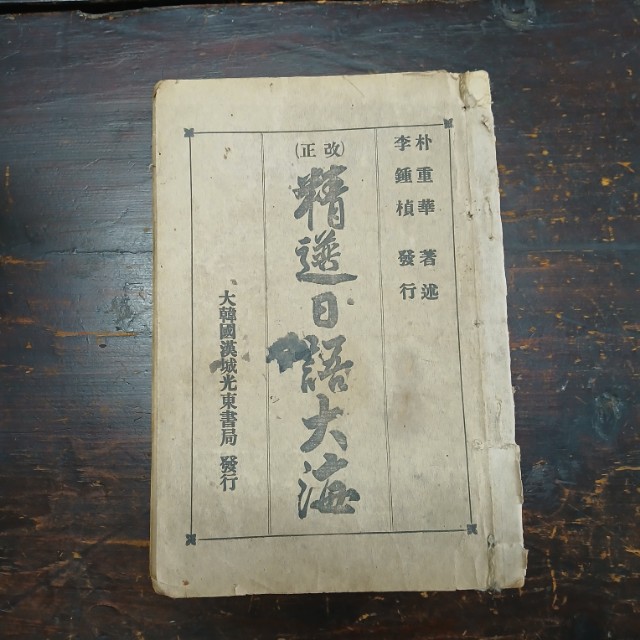 朴重華 著述
李鍾楨 發行
(改正)
精選日語大海
大韓國漢城光東書局 發行